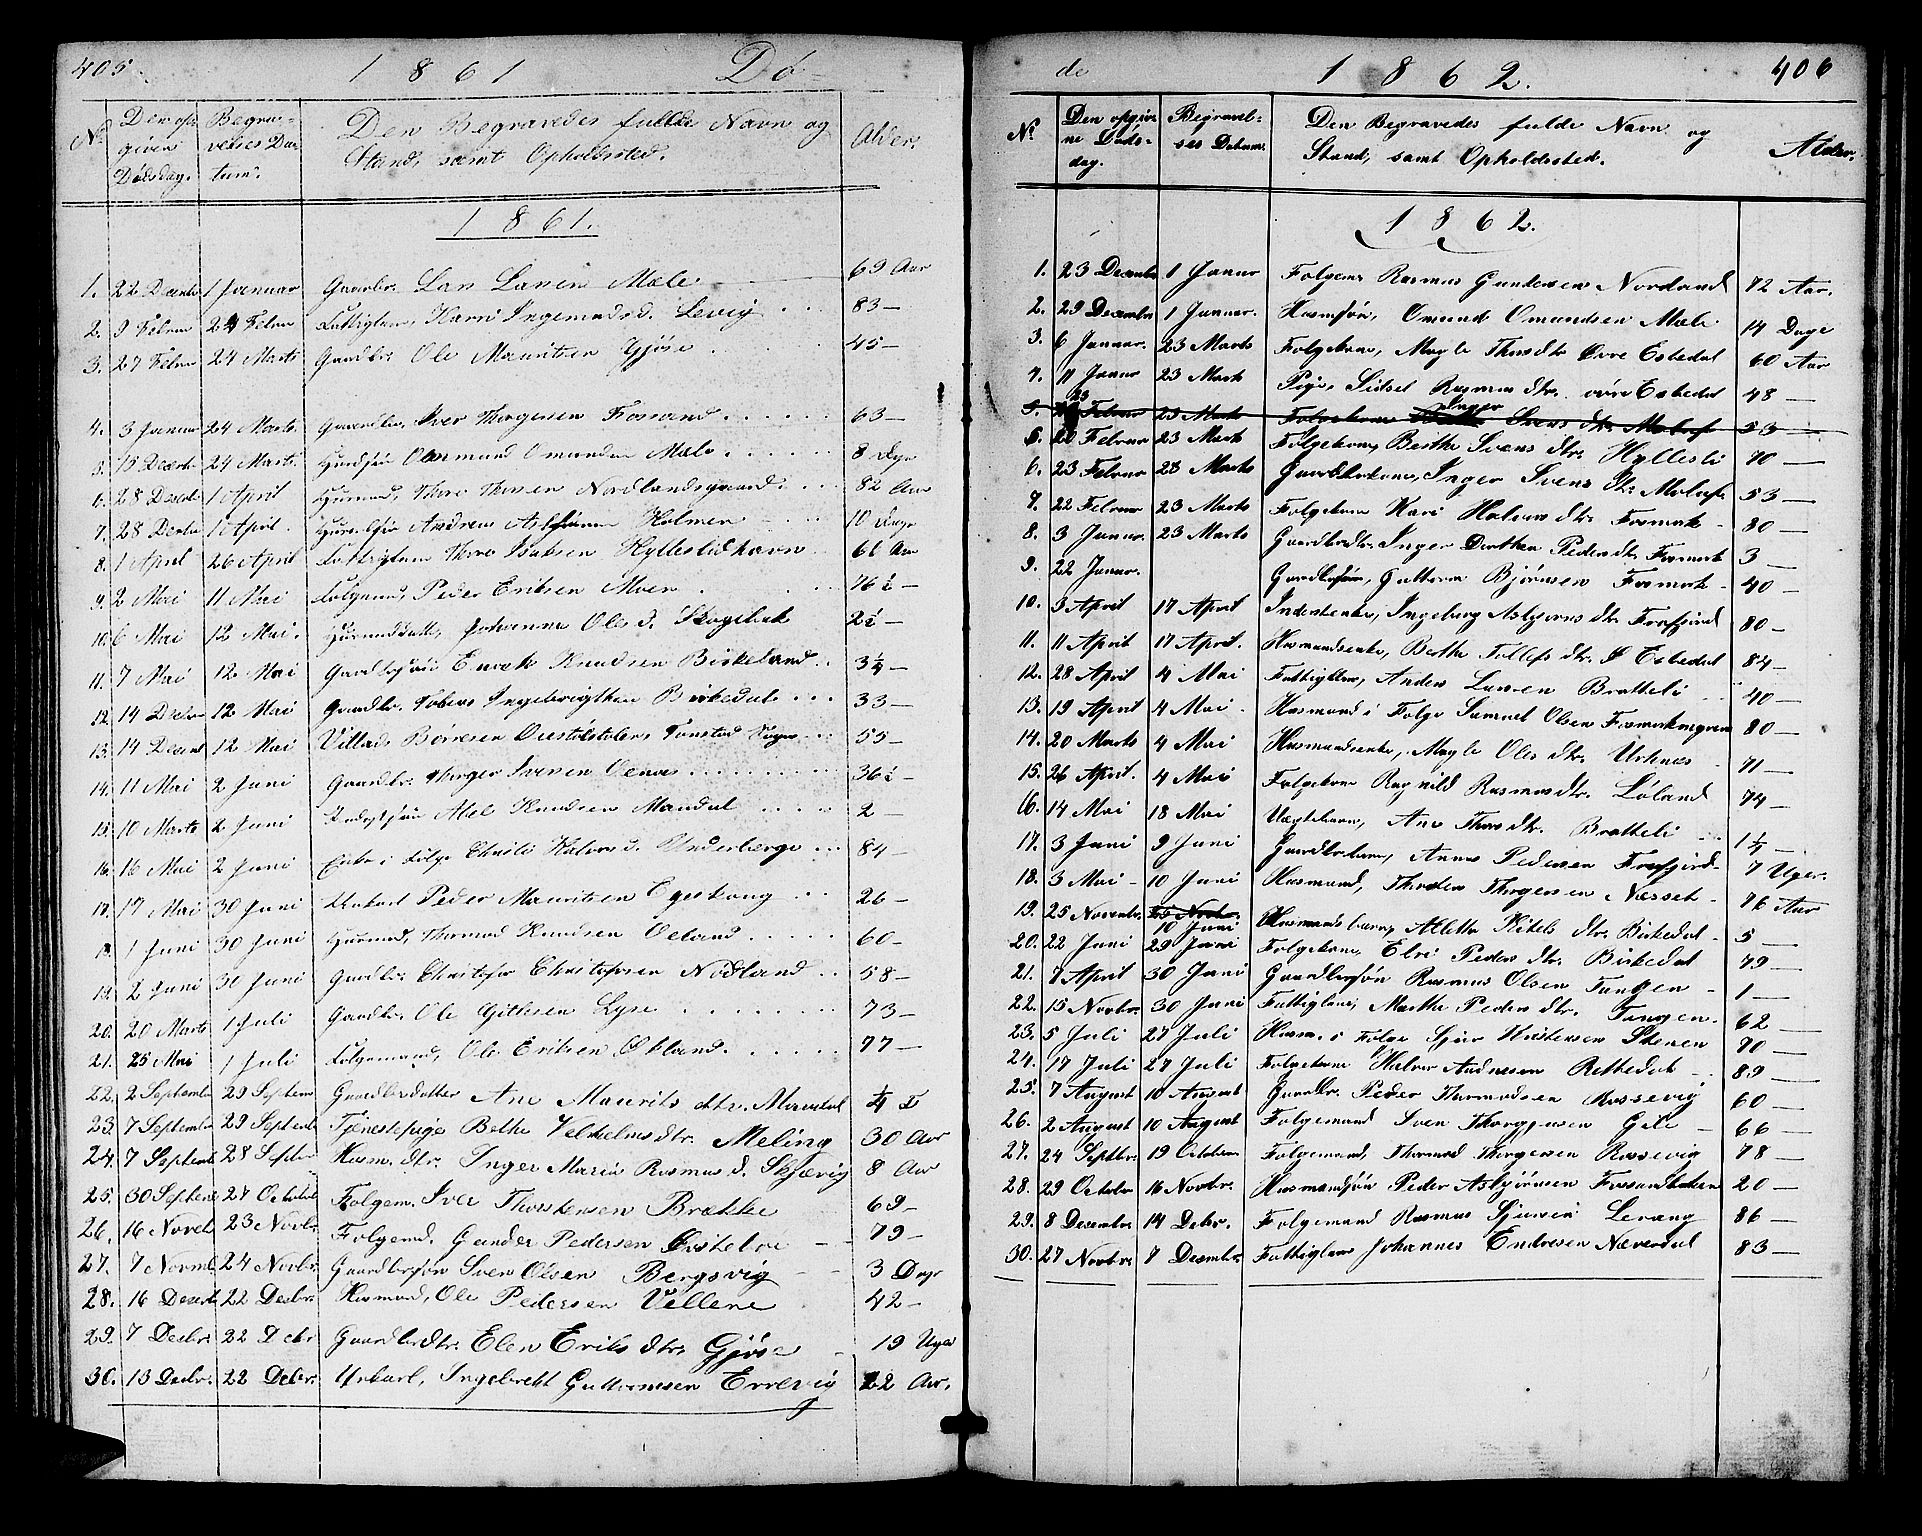 405.
1861
Dø-
No
Den opgivne Dødsdag.
Begravelses Datum.
Den Begravedes fulde Navn og Stand, samt Opholdssted.
Alder.
1861.
1. 22 Decembr 1 Januar Gaardbr. Lars Larsen Mæle 69 Aar
2. 9 Februar 24 Februar Fattiglem, Karri Ingemundsd. Levig 83 —
3. 27 Februar 24 Marts Gaardbr. Ole Mauritsen Gjøse 45 —
4. 3 Januar 24 Marts. Gaardbr. Iver Thorgersen Fossand 63 —
5. 15 Decembr 24 Marts. Huusmsøn Omund Omundsen Mæle 8 Dage
6. 28 Decembr 1 April Huusmd. Thore Thorsen Nordlandsgaard 82 Aar
7. 28 Decembr 1 April. Huusm.søn Andreas Asbjørnsen Holmen 10 Dage
8. 1 April 26 April Fattiglem Thore Isaksen Hyllestadhavn 66 Aar
9. 2 Mai 11 Mai Folgemd. Peder Eriksen Moen 76½ —
10. 6 Mai 12 Mai. Huusmdsdatter, Johanna Ols d. Skogsbak 2½ —
11. 7 Mai 12 Mai Gaardbrsøn Enok Knudsen Birkeland 3¼ —
12. 14 Decbr 12 Mai Gaardbr. Tobias Ingebrigtsen Birkedal 33 —
13. 14 Decembr 12 Mai Villads Børresen Tonstad 55 —
14. 11 Mai 2 Juni Gaardbr. Thorger Svensen Oenæs 36½ —
15. 10 Marts 2 Juni Abel Knudsen Mandal 2 —
16. 16 Mai 2 Juni Enke i Folge Christi Halvors d. Underberge 84 —
17. 17 Mai 30 Juni Unkarl Peder Mauritsen Egeskoug 26 —
18. 1 Juni 30 Juni Huusmd. Thormod Knudsen Øeland 60 —
19. 2 Juni 30 Juni Gaardbr. Christofer Christofersen Nordland 58 —
20. 20 Marts 1 Juli Gaardbr. Ole Githesen Lyse 73 —
21. 25 Mai 1 Juli Folgemand, Ole Eriksen Økland 77 —
22. 2 Septembr 29 Septem Gaardbrdatter Ane Maurits dtr. Mandal ¼ —
23. 7 Septembr 29 Septenbr Tjenestepige Bethe Velhelms dtr. Meling 30 Aar
24. 7 Septembr 28 Septbr Husm. dtr. Inger Maria Rasmus d. Skjævig 8 Aar
25. 30 Septenbr 27 Octobr Folgem. Iver Thorstensen Brække 69 —
26. 16 Novebr 23 Novbr. Folgemd. Gunder Pedersen Østebøe 79 —
27. 7 Novmbr 24 Novbr. Gaardbrsøn Sven Olsen Bergsvig 3 Dage
28. 16 Decembr 22 Decbr. Husmand, Ole Pedersen Vellene 42 —
29. 7 Decbr. 22 Decbr Gaardbrdtr. Elen Eriks dtr. Gjøse 19 Uger
30. 13 Decbr. 22 Decbr. Unkarl, Ingebreth Guttormsen Errevig 22 Aar.
de
1862.
406
No.
Den opgivne Dødsdag.
Begravelses Datum.
Den Begravedes fulde Navn og Stand, samt Opholdssted.
Alder.
1862.
1. 23 Decembr 1 Januar Folgem Rasmus Gundersen Nordland 72 Aar.
2. 29 Decembr 1 Januar. Husmsøn, Omund Omundsen Mæle 14 Dage
3. 6 Januar. 23 Marts Folgekone, Magle Thors dtr Øvre Esbedal 60 Aar
4. 11 Januar 23 Marts Pige, Sidsel Rasmus dtr. øvre Esbedal 48 —
5. 23 Februar 23 Marts Folgekone Inger Svens dtr. Molaug 53 —
6. 20 Februar 23 Marts Folgekone, Berthe Svens dtr. Hyllesli 70 —
6. 23 Februar 23 Marts Gaardbrkone, Inger Svens dtr. Molaug 53 —
7. 22 Februar 23 Marts Folgekone Kari Halvors dtr. Fosmark 80 —
8. 3 Januar. 23 Marts Gaardbrdtr. Inger Dorthea Peders dtr. Fosmark 3 —
9. 22 Januar. Gaardbrsøn, Guttorm Bjørnsen Fosmark 40 —
10. 3 April 17 April Inderstenke, Ingeborg Asbjørns dtr. Frafjord 80 —
11. 11 April 17 April. Husmandsenke, Berthe Tollefs dtr. Ø Esbedal 84 —
12. 28 April 4 Mai Fattiglem, Anders Larsen Bratteli 40 —
13. 19 April 4 Mai. Husmand i Folge Samuel Olsen Fosmark 80 —
14. 20 Marts 4 Mai Husmandsenke, Magle Ols dtr. Urhnæs 71 —
15. 26 April. 4 Mai Folgekone Ragnild Rasmusdtr. Løland 74 —
16. 14 Mai 18 Mai Uægtebarn, Ane Thors dtr. Bratteli 1½ —
17. 3 Juni 9 Juni Gaardbrbarn, Annas Pedersen Frafjord 7 Uger.
18. 3 Mai 10 Juni Husmand, Thorsten Thorgersen Næsset 76 Aar
19. 25 Novembr. 10 Juni Husmandsbarn, Alletta Ketels dtr. Birkedal 5 —
20. 22 Juni 29 Juni Folgekone, Elsi Peders dtr. Birkedal 79 —
21. 7 April 30 Juni Gaardbrsøn Rasmus Olsen Tungen 1 —
22. 15 Novbr. 30 Juni Fattiglem, Marthe Peders dtr. Tungen. 62 —
23. 5 Juli 27 Juli Husm. i Folge Sjur Stenen 70 —
24. 17 Juli 27 Juli Folgekone Halvor Andresen Rettedal 89 —
25. 7 August 10 August Gaardbr. Peder Thormodsen Rossevig 60 —
26. 2 August 10 August Folgemand Sven Thorgjersen Gilje 66 —
27. 24 Septbr. 19 October Folgemand, Thormod Thorgersen Rossevig 78 —
28. 29 Octobr 16 Novbr. Husmandsøn Peder Asbjørnsen Fossandbakken 20 —
29. 8 Desembr. 14 Debr. Folgemand Rasmus Sjursen Levang 86 —
30. 27 Novbr. 7 Desembr. Fattiglem Johannes Endresen Næverdal 83 —